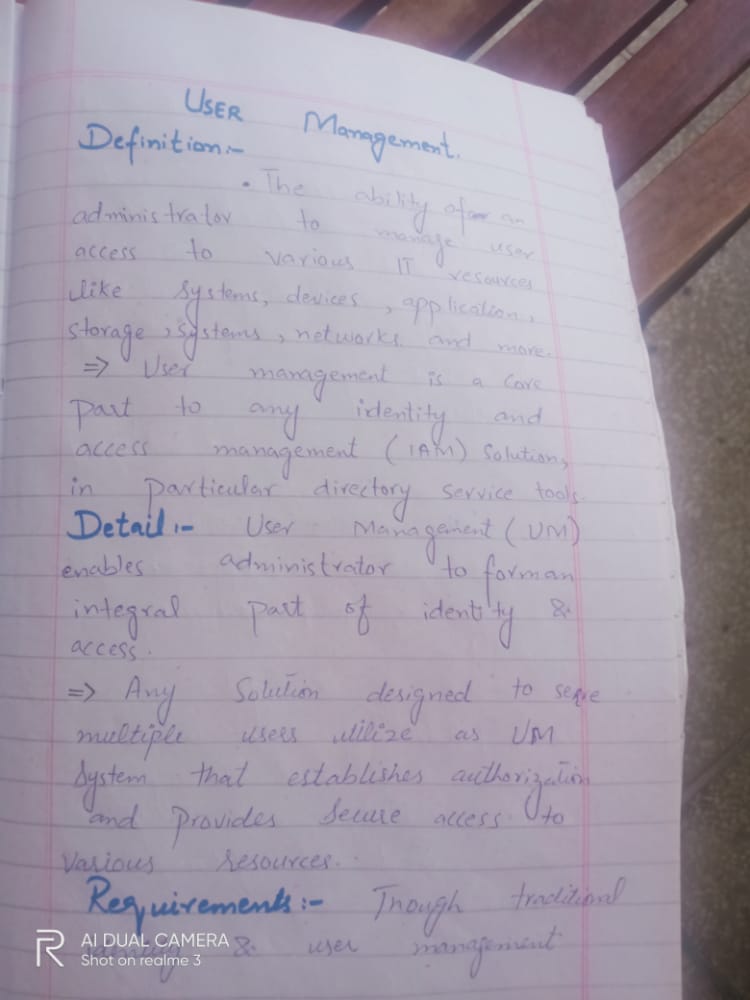 USER Management.
Definition:-
• The ability of an
administrator to manage user
access to various IT resources
like systems, devices, application,
storage, systems, networks and more.
=> User management is a core
part to any identity and
access management (IAM) solution,
in particular directory service tools.
Detail:- User Management (UM)
enables administrator to forman
integral part of identity &
access.
=> Any Solution designed to serve
multiple users utilize as UM
System that establishes authorization
and provides secure access to
various resources.
Requirements:- Trough traditional
& user management
AI DUAL CAMERA
Shot on realme 3